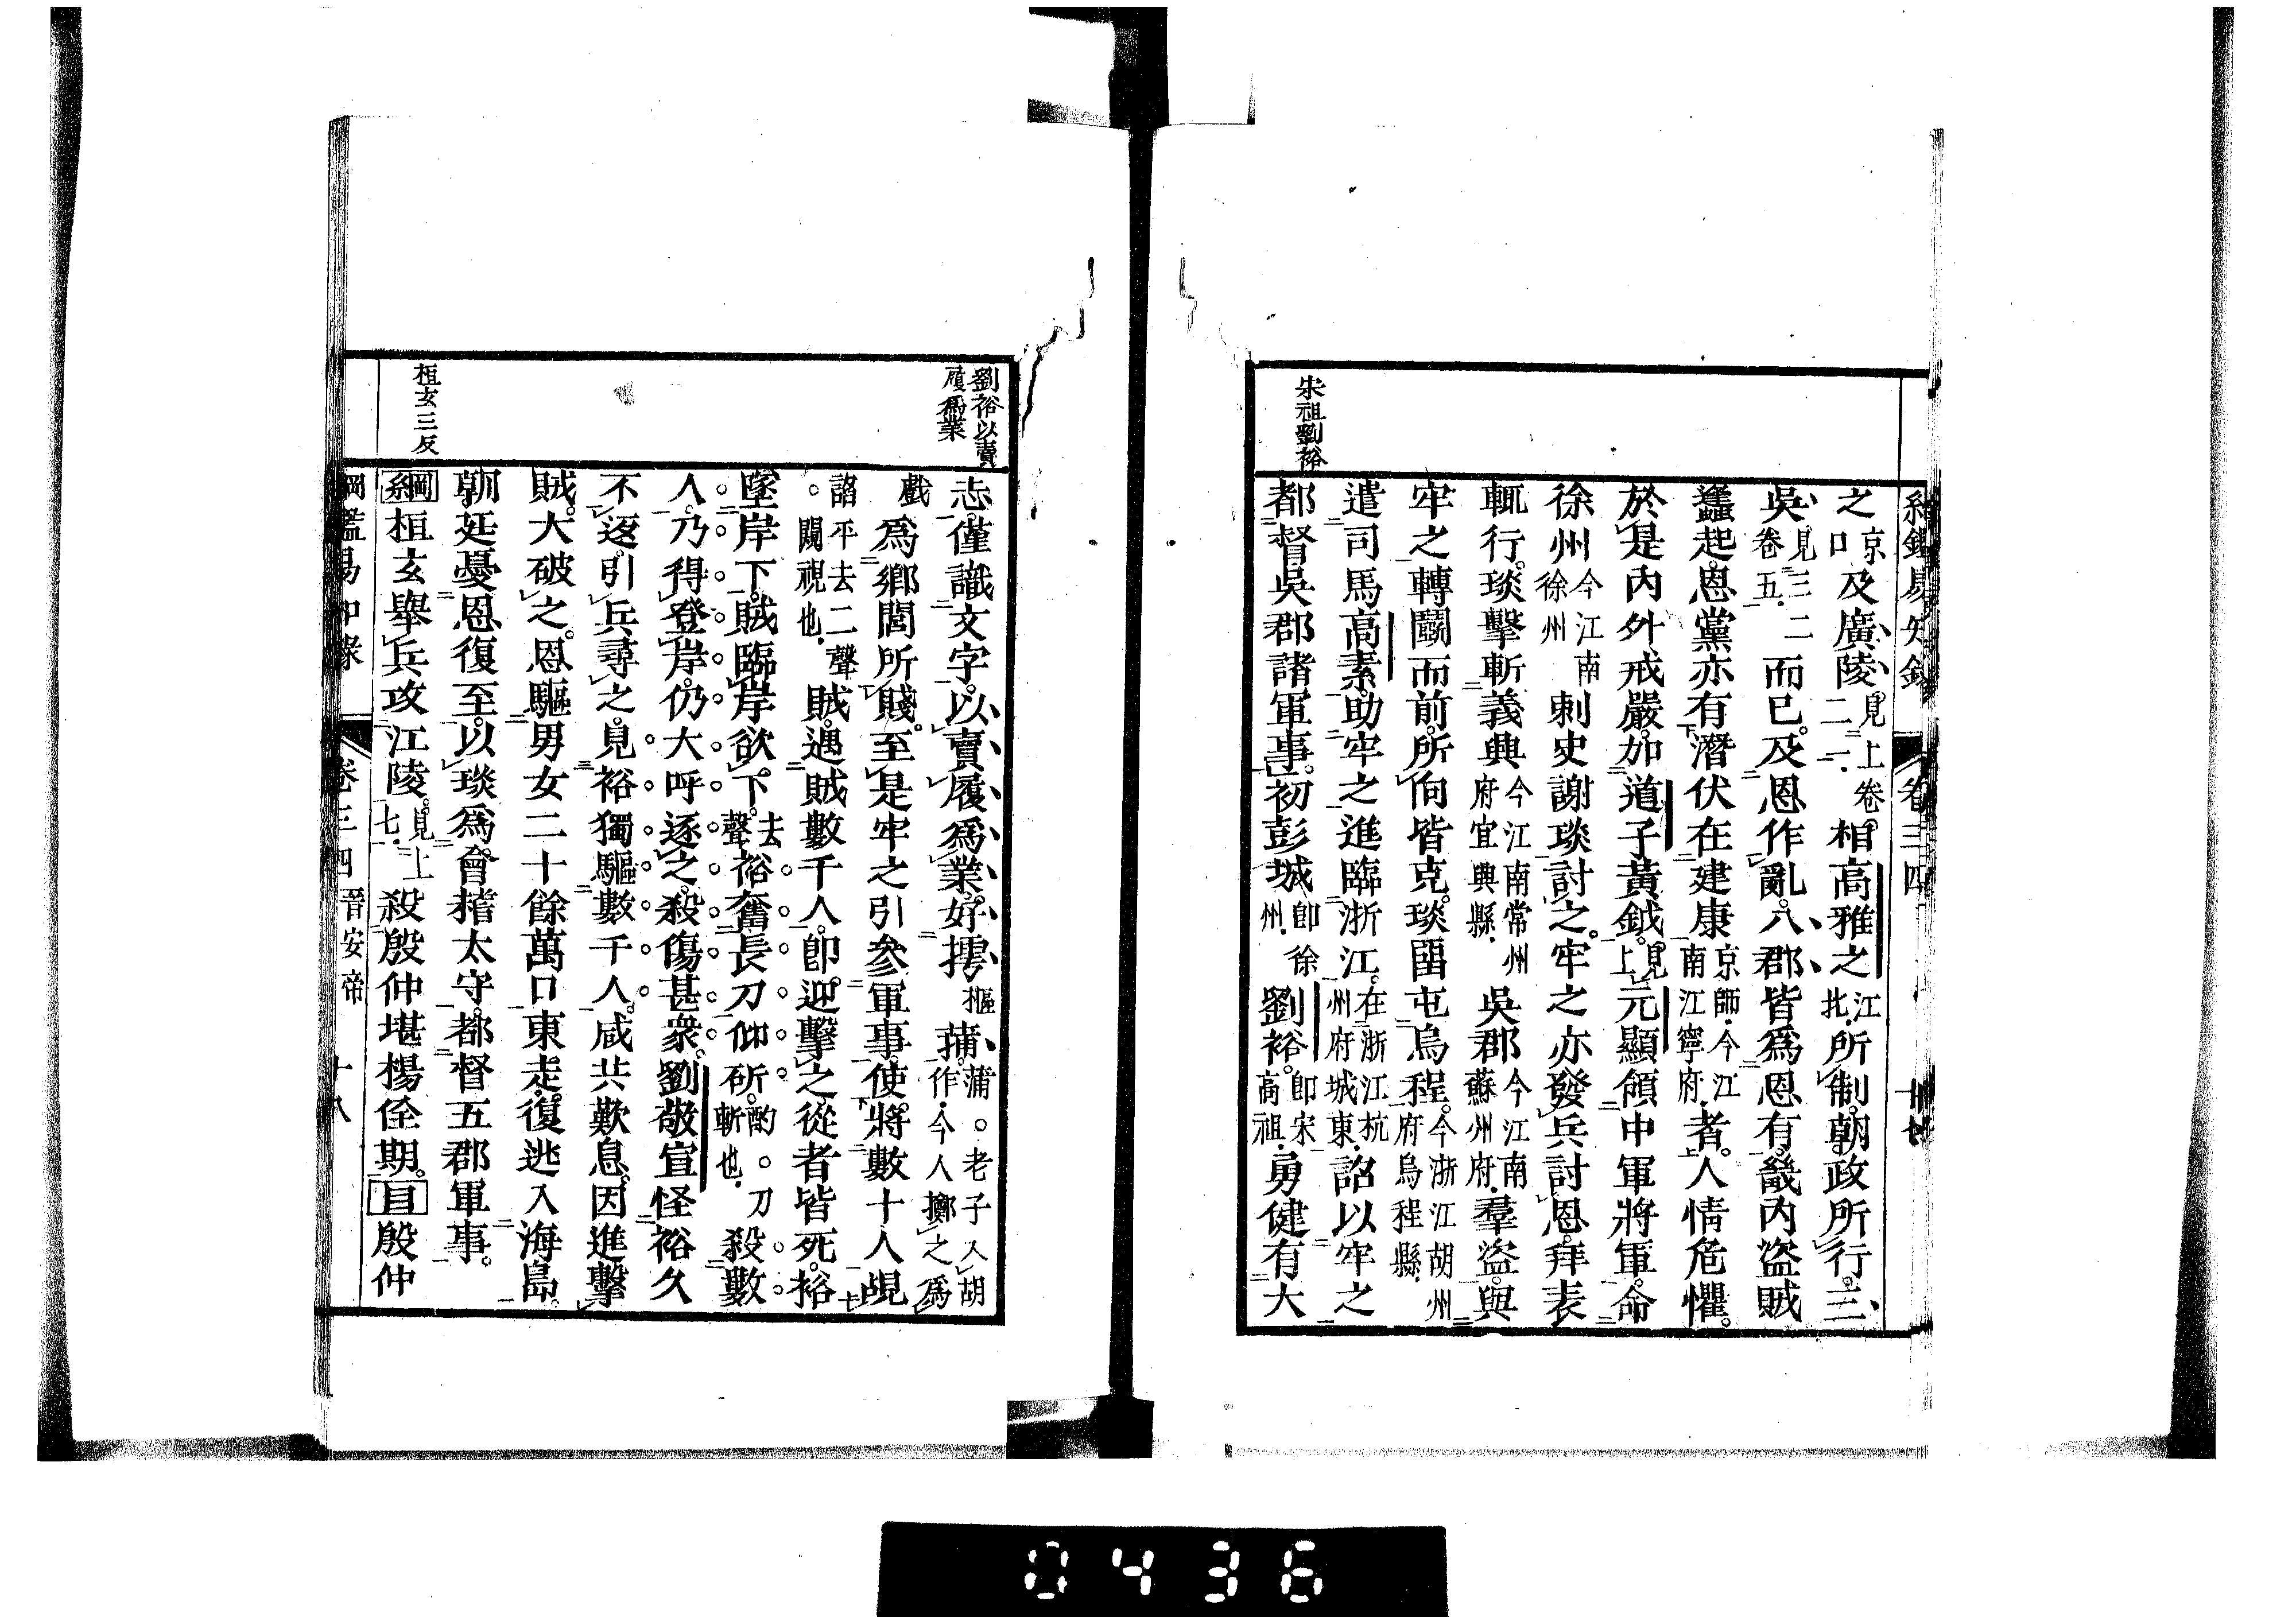 綱鑑易知錄
卷三四
十七
宋祖劉裕
之京口及廣陵見上卷二一.相高雅之江北.所制。朝政所行。三
吳見三二卷五.而已。及恩作亂。八郡皆爲恩有。畿內盜賊
蠭起。恩黨亦有潛伏在建康京師.今江南江寧府.者。人情危懼。
於是內外戒嚴。加道子黃鉞。見上元顯領中軍將軍。命
徐州今江南徐州刺史謝琰討之。牢之亦發兵討恩。拜表
輒行。琰擊斬義興今江南常州府宜興縣.吳郡今江南蘇州府.羣盜。與
牢之轉鬭而前。所向皆克。琰留屯烏程。今浙江胡州府烏程縣.
遣司馬高素。助牢之進臨浙江。在浙江杭州府城東.詔以牢之
都督吳郡諸軍事。初彭城卽徐州.劉裕。卽宋高祖.勇健有大
劉裕以賣
履爲業
志。僅識文字。以賣履爲業。好摴樞蒱。蒲。作.老子入胡今人擲之爲
戲爲鄉閭所賤。至是牢之引參軍事。使將數十人覘
諂平去二聲。闚視也.賊。遇賊數千人。卽迎擊之。從者皆死。裕
墜岸下。賊臨岸欲下。去聲裕奮長刀仰斫。酌。刀斬也.殺數
人。乃得登岸。仍大呼逐之。殺傷甚衆。劉敬宣怪裕久
不返。引兵尋之。見裕獨驅數千人。咸共歎息。因進擊
賊。大破之。恩驅男女二十餘萬口東走。復逃入海島。
朝廷憂恩復至。以琰爲會稽太守。都督五郡軍事。
桓玄三反
綱桓玄舉兵攻江陵。見上七.殺殷仲堪楊佺期。目殷仲
綱鑑易知錄
卷三四
晉安帝
十八
0436